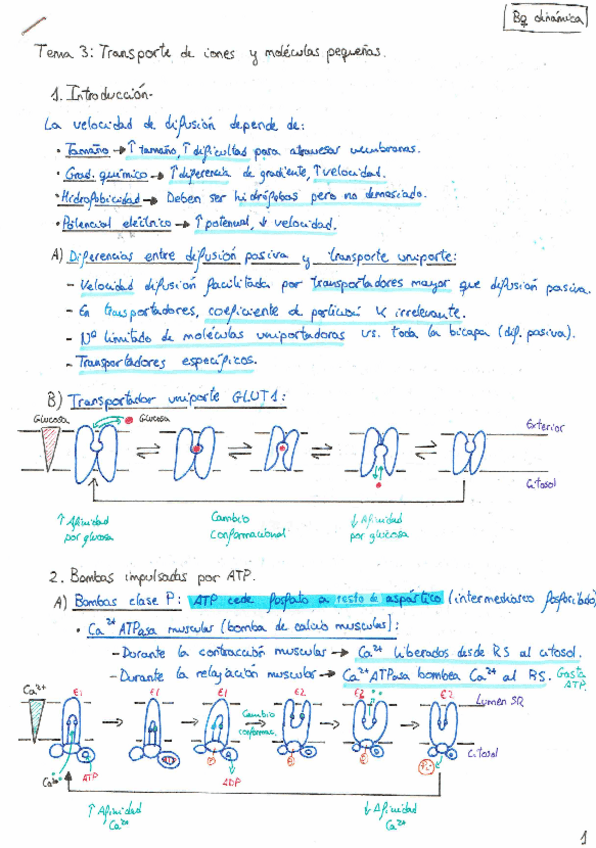 Bq dinámica
Tema 3: Transporte de iones y moléculas pequeñas.
1. Introducción-
La velocidad de difusión depende de:
· Tamaño → ↑ tamaño, ↑ dificultad para atravesar membranas.
· Grad. químico → ↑ diferencia de gradiente, ↑ velocidad.
· Hidrofobicidad → Deben ser hidrófobas pero no demasiado.
· Potencial eléctrico → ↑ potencial, ↓ velocidad.
A) Diferencias entre difusión pasiva y transporte uniporte:
- Velocidad difusión facilitada por transportadores mayor que difusión pasiva.
- En transportadores, coeficiente de partición K irrelevante.
- Nº limitado de moléculas uniportadoras vs. toda la bicapa (dif. pasiva).
- Transportadores específicos.
B) Transportador uniporte GLUT1:
Glucosa Glucosa Exterior
Citosol
↑ Afinidad por glucosa
Cambio conformacional
↓ Afinidad por glucosa
2. Bombas impulsadas por ATP.
A) Bombas clase P: ATP cede fosfato a resto de aspártico (intermediario fosforilado)
· Ca2+ ATPasa muscular (bomba de calcio muscular):
- Durante la contracción muscular → Ca2+ liberados desde RS al citosol.
- Durante la relajación muscular → Ca2+ATPasa bombea Ca2+ al RS. Gasta ATP.
Ca2+ E1 E1 E1 E2 E2 E2 Lumen SR
Cambio conformac.
Citosol
Ca2+ ATP ATP P ADP P P Pi
↑ Afinidad Ca2+
↓ Afinidad Ca2+
1